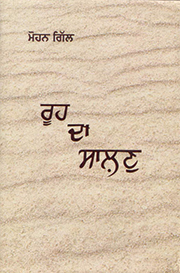 ਮੋਹਨ ਗਿੱਲ
ਰੂਹ
ਦਾ
ਸਾਲਣੁ